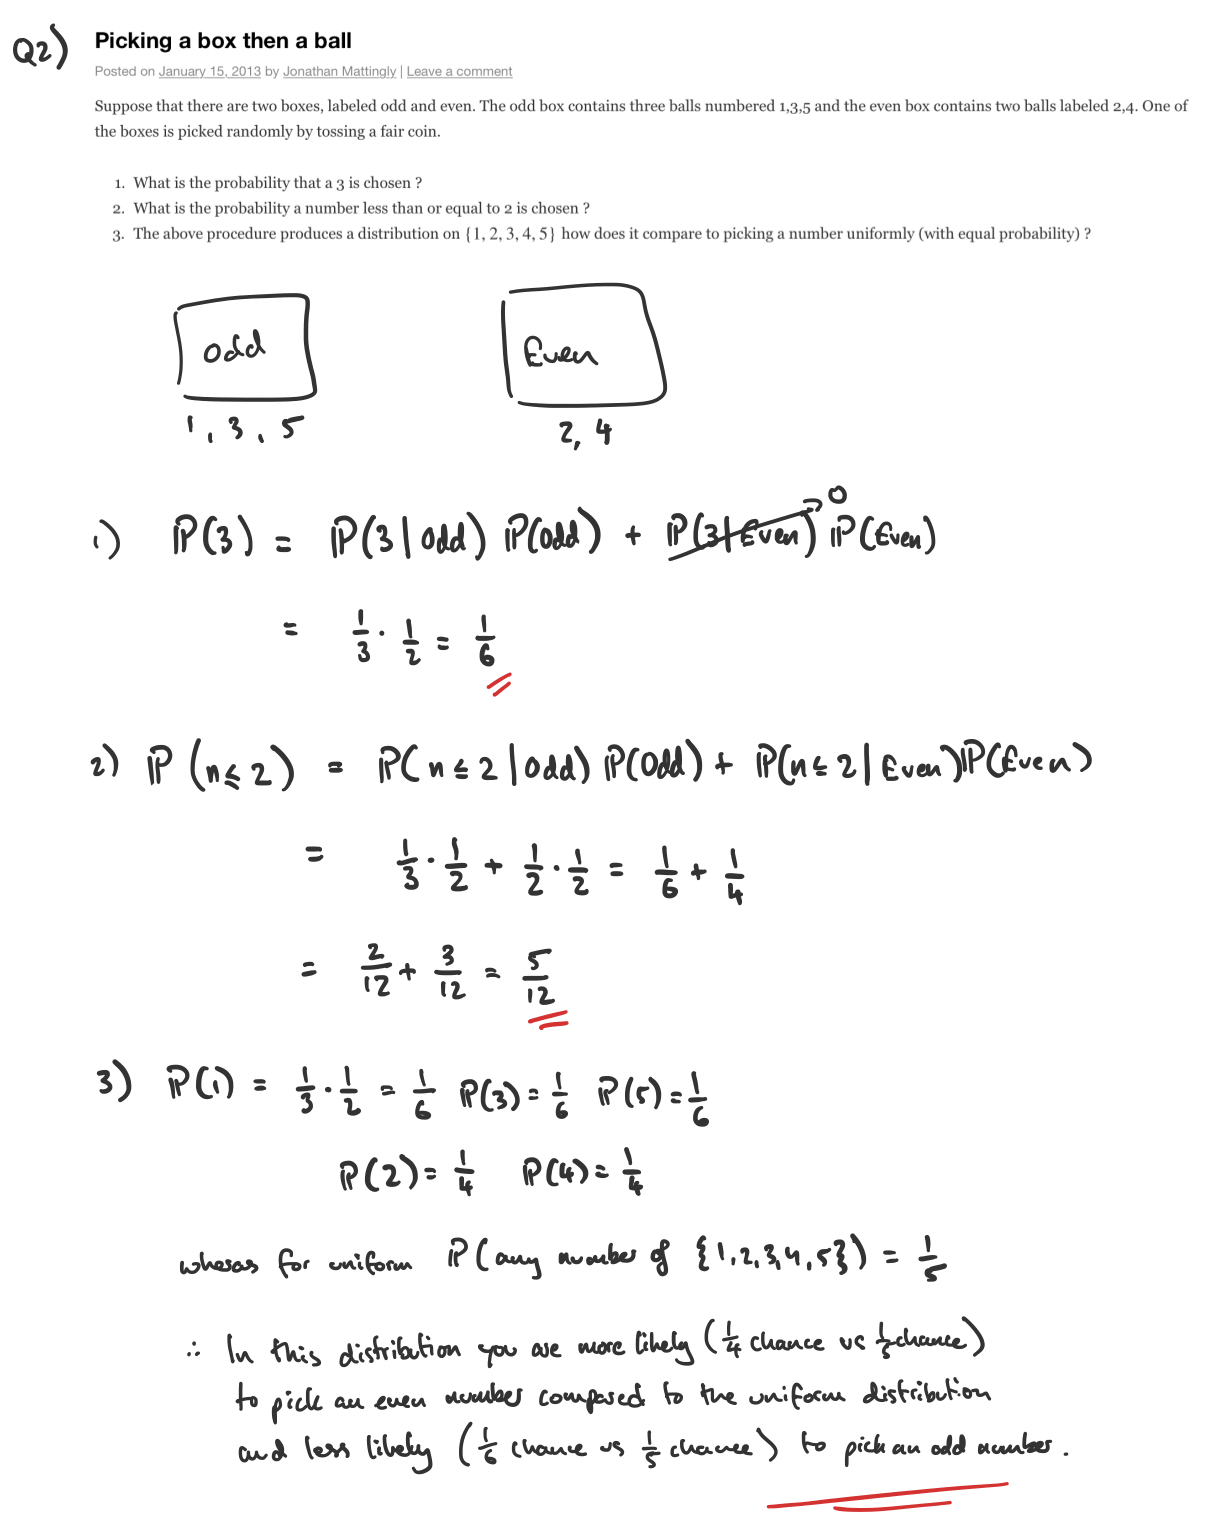 Q2) Picking a box then a ball
Posted on January 15, 2013 by Jonathan Mattingly | Leave a comment
Suppose that there are two boxes, labeled odd and even. The odd box contains three balls numbered 1,3,5 and the even box contains two balls labeled 2,4. One of
the boxes is picked randomly by tossing a fair coin.
1. What is the probability that a 3 is chosen ?
2. What is the probability a number less than or equal to 2 is chosen ?
3. The above procedure produces a distribution on {1, 2, 3, 4, 5} how does it compare to picking a number uniformly (with equal probability) ?
odd Even
1, 3, 5 2, 4
1) ℙ(3) = ℙ(3|odd) ℙ(odd) + ℙ(3|Even)→0 ℙ(Even)
= 1/3 · 1/2 = 1/6
2) ℙ(n≤2) = ℙ(n≤2|odd) ℙ(odd) + ℙ(n≤2|Even)ℙ(Even)
= 1/3 · 1/2 + 1/2 · 1/2 = 1/6 + 1/4
= 2/12 + 3/12 = 5/12
3) ℙ(1) = 1/3 · 1/2 = 1/6 ℙ(3) = 1/6 ℙ(5) = 1/6
ℙ(2) = 1/4 ℙ(4) = 1/4
wheras for uniform ℙ(any number of {1,2,3,4,5}) = 1/5
∴ In this distribution you are more likely (1/4 chance vs 1/5 chance)
to pick an even number compared to the uniform distribution
and less likely (1/6 chance vs 1/5 chance) to pick an odd number.